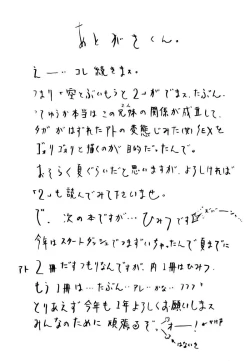 あとがきくん。
えーー、コレ続きまス。
つまり「空とぶいもうと2」がでまス。たぶん。
ってゅうか本当はこの兄妹の関係が成立して、
タガがはずれた外の変態じみた(笑)SEXを
ゴリゴリと描くのが目的だったんで。
おそらく夏ぐらいだと思いますが、よろしければ
「2」も読んでみて下さいませ。
で、次の本ですが…ひみつです
今年はスタートダッシュでつまずいちゃったんで夏までに
2冊だすつもりなんですが、内1冊はひみつ。
もう1冊は…たぶん…アレ…かな…???
とりあえず今年も1年よろしくお願いしまス
みんなのために頑張るで、オー!
はないき